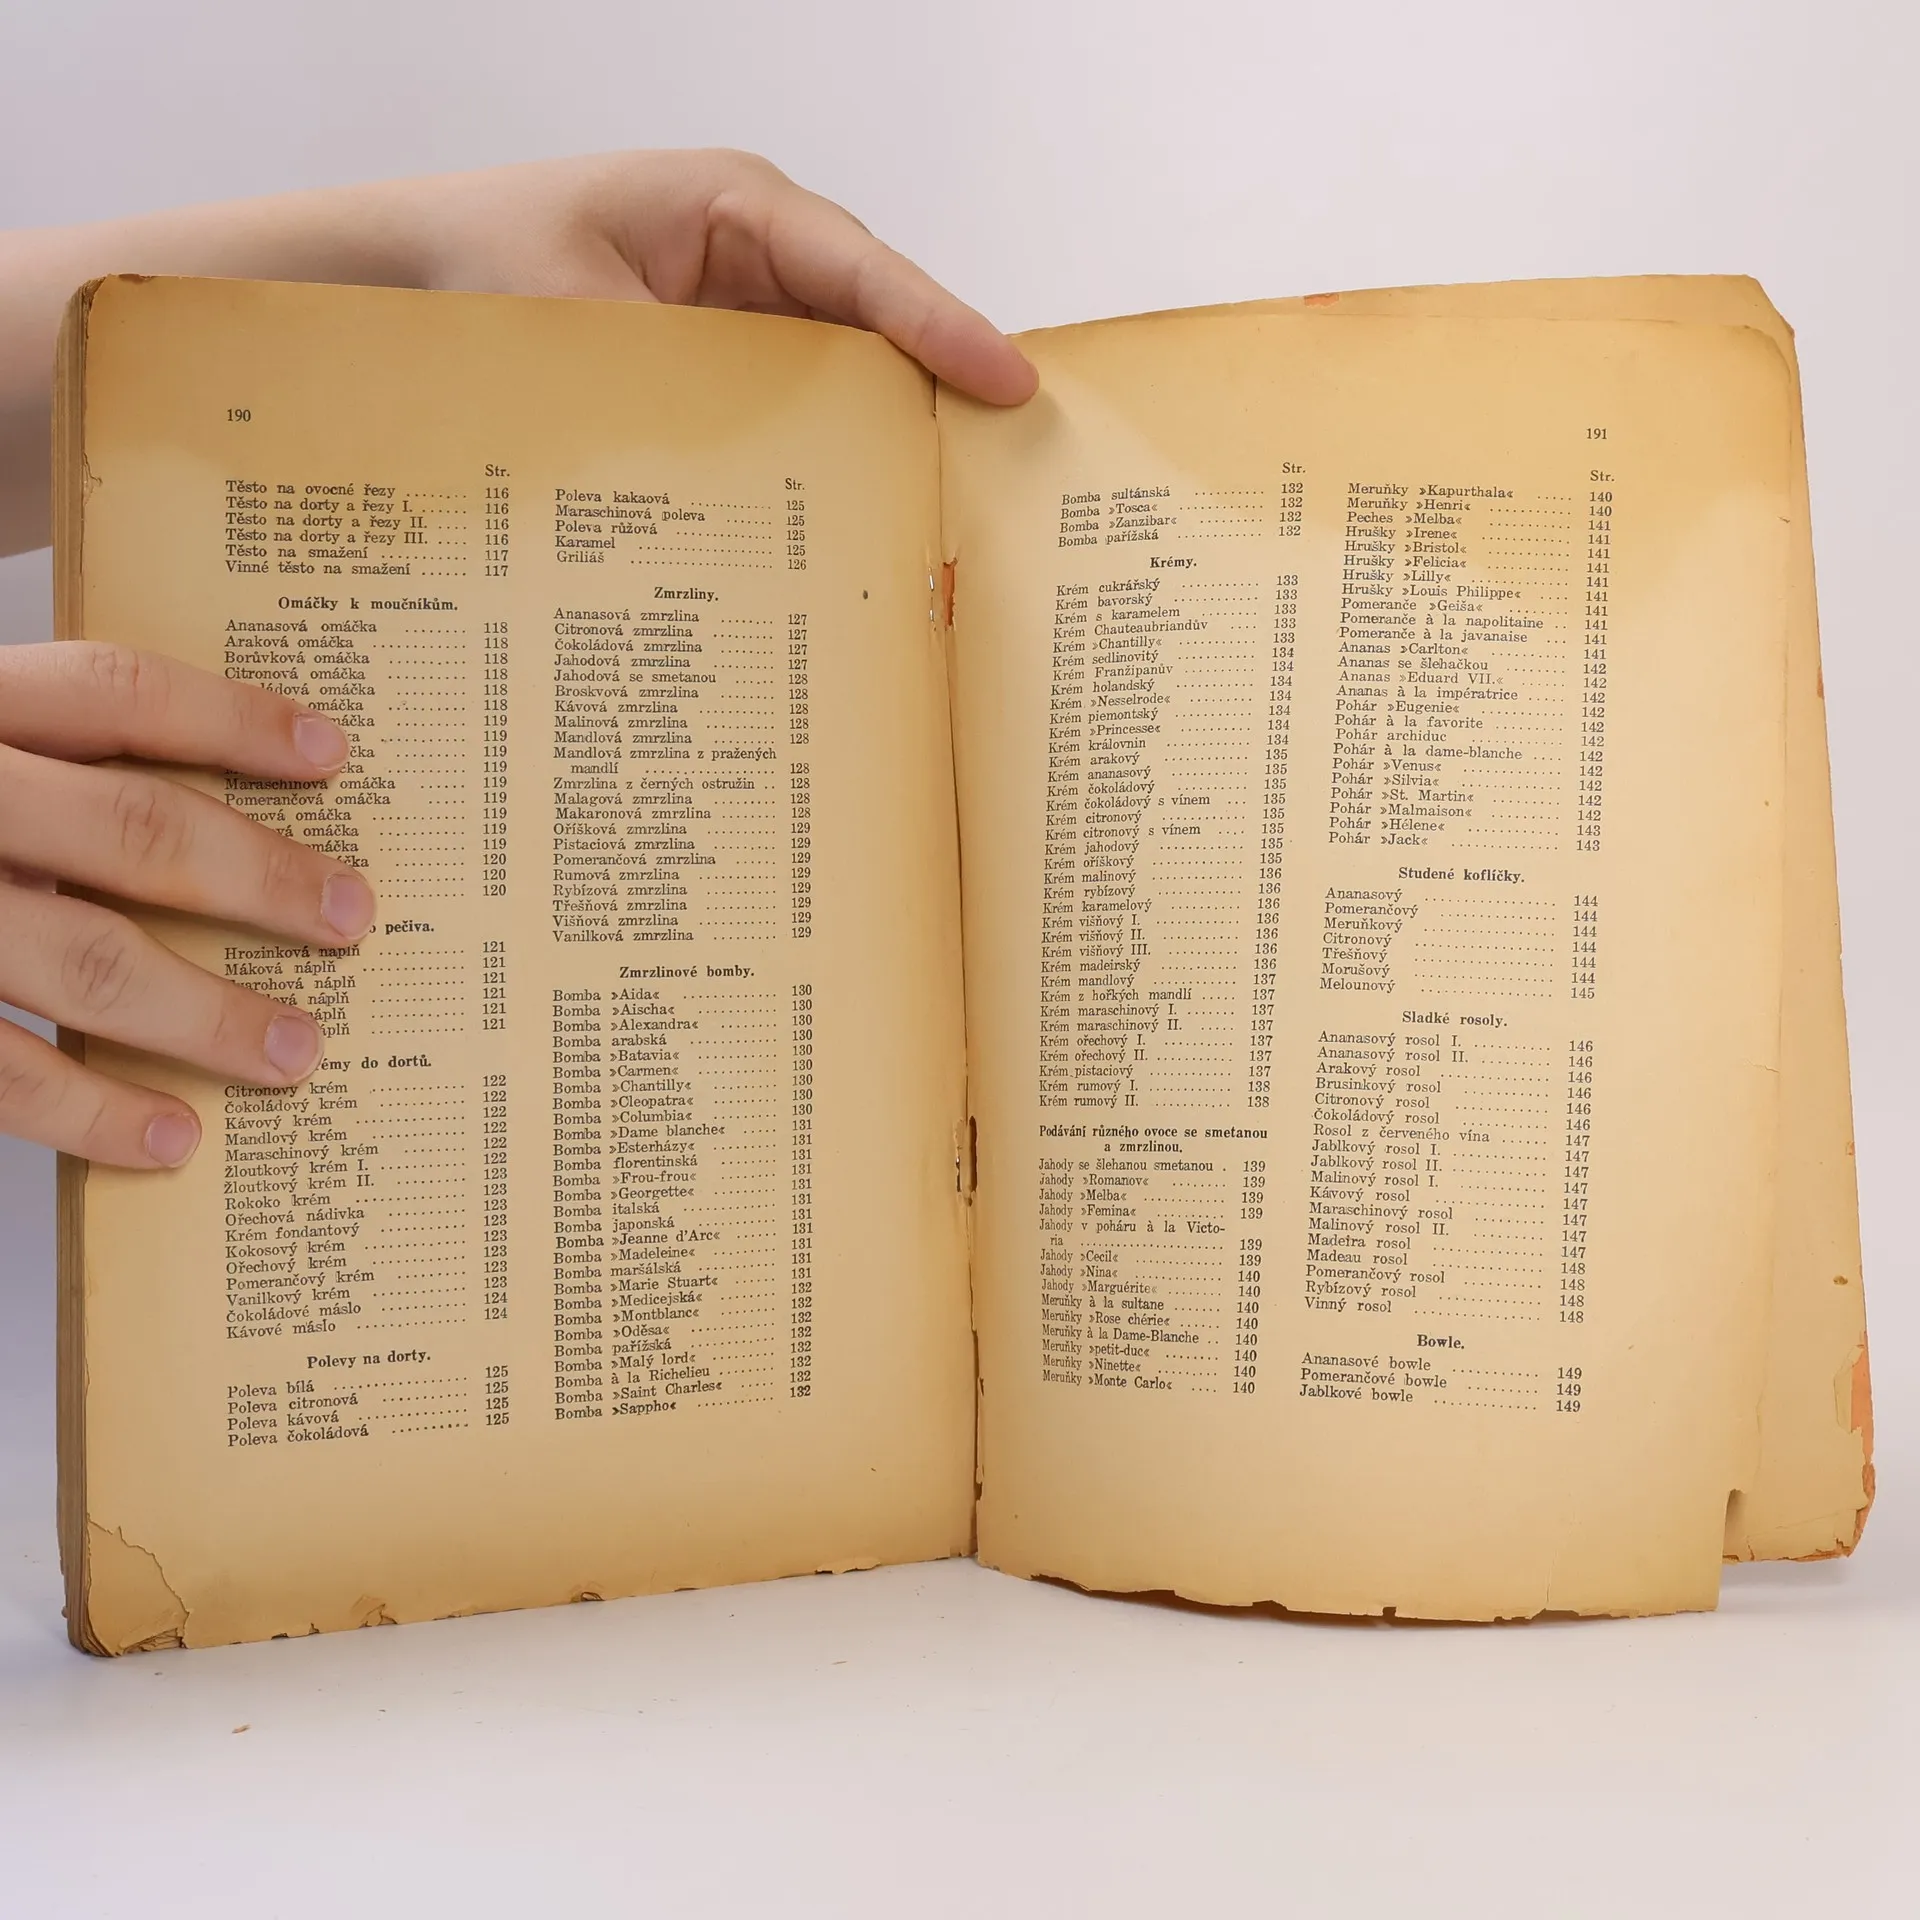 190
Str.
Těsto na ovocné řezy ........ 116
Těsto na dorty a řezy I. ...... 116
Těsto na dorty a řezy II. .... 116
Těsto na dorty a řezy III. .... 116
Těsto na smažení ........... 117
Vinné těsto na smažení ...... 117
Omáčky k moučníkům.
Ananasová omáčka ........ 118
Araková omáčka ............ 118
Borůvková omáčka .......... 118
Citronová omáčka .......... 118
omáčka ......... 118
omáčka ......... 118
119
119
119
119
Maraschinová omáčka ...... 119
Pomerančová omáčka ..... 119
omáčka ........... 119
omáčka ........... 119
119
120
120
120
pečiva.
Hrozinková náplň ........... 121
Máková náplň ............. 121
náplň ........... 121
náplň ............ 121
náplň ............ 121
121
do dortů.
Citronový krém ............ 122
Čokoládový krém .......... 122
Kávový krém .............. 122
Mandlový krém ............ 122
Maraschinový krém ........ 122
Žloutkový krém I. .......... 122
Žloutkový krém II. ......... 123
Rokoko krém .............. 123
Ořechová nádivka .......... 123
Krém fondantový .......... 123
Kokosový krém ............ 123
Ořechový krém ............ 123
Pomerančový krém ........ 123
Vanilkový krém ............ 123
Čokoládové máslo .......... 124
Kávové máslo ............. 124
Polevy na dorty.
Poleva bílá ................ 125
Poleva citronová ........... 125
Poleva kávová ............. 125
Poleva čokoládová .......... 125
Str.
Poleva kakaová ............ 125
Maraschinová poleva ....... 125
Poleva růžová ............. 125
Karamel .................. 125
Griliáš ................... 126
Zmrzliny.
Ananasová zmrzlina ........ 127
Citronová zmrzlina ......... 127
Čokoládová zmrzlina ....... 127
Jahodová zmrzlina ......... 127
Jahodová se smetanou ...... 128
Broskvová zmrzlina ........ 128
Kávová zmrzlina ........... 128
Malinová zmrzlina ......... 128
Mandlová zmrzlina ......... 128
Mandlová zmrzlina z pražených
mandlí ................. 128
Zmrzlina z černých ostružin .. 128
Malagová zmrzlina ......... 128
Makaronová zmrzlina ....... 128
Oříšková zmrzlina .......... 129
Pistaciová zmrzlina ......... 129
Pomerančová zmrzlina ...... 129
Rumová zmrzlina .......... 129
Rybízová zmrzlina ......... 129
Třešňová zmrzlina ......... 129
Višňová zmrzlina .......... 129
Vanilková zmrzlina ........ 129
Zmrzlinové bomby.
Bomba »Aida« ............ 130
Bomba »Aischa« .......... 130
Bomba »Alexandra« ....... 130
Bomba arabská ............ 130
Bomba »Batavia« .......... 130
Bomba »Carmen« .......... 130
Bomba »Chantilly« ........ 130
Bomba »Cleopatra« ........ 130
Bomba »Columbia« ........ 130
Bomba »Dame blanche« ..... 131
Bomba »Esterházy« ........ 131
Bomba florentinská ........ 131
Bomba »Frou-frou« ........ 131
Bomba »Georgette« ........ 131
Bomba italská ............. 131
Bomba japonská ........... 131
Bomba »Jeanne d'Arc« ..... 131
Bomba »Madeleine« ........ 131
Bomba maršálská .......... 131
Bomba »Marie Stuart« ..... 132
Bomba »Medicejská« ....... 132
Bomba »Montblanc« ....... 132
Bomba »Oděsa« ........... 132
Bomba pařížská ........... 132
Bomba »Malý lord« ........ 132
Bomba à la Richelieu ....... 132
Bomba »Saint Charles« ..... 132
Bomba »Sappho« .......... 132
191
Str.
Bomba sultánská .......... 132
Bomba »Tosca« ........... 132
Bomba »Zanzibar« ........ 132
Bomba pařížská ........... 132
Krémy.
Krém cukrářský ........... 133
Krém bavorský ............ 133
Krém s karamelem ......... 133
Krém Chauteaubriandův .... 133
Krém »Chantilly« .......... 133
Krém sedlinovitý .......... 134
Krém Franžipanův ......... 134
Krém holandský ........... 134
Krém »Nesselrode« ........ 134
Krém piemontský .......... 134
Krém »Princesse« .......... 134
Krém královnin ........... 134
Krém arakový ............. 135
Krém ananasový ........... 135
Krém čokoládový .......... 135
Krém čokoládový s vínem ... 135
Krém citronový ............ 135
Krém citronový s vínem .... 135
Krém jahodový ............ 135
Krém oříškový ............ 135
Krém malinový ............ 136
Krém rybízový ............ 136
Krém karamelový .......... 136
Krém višňový I. ........... 136
Krém višňový II. .......... 136
Krém višňový III. ......... 136
Krém madeirský ........... 136
Krém mandlový ........... 137
Krém z hořkých mandlí ..... 137
Krém maraschinový I. ...... 137
Krém maraschinový II. ..... 137
Krém ořechový I. .......... 137
Krém ořechový II. ......... 137
Krém pistaciový ........... 137
Krém rumový I. ........... 138
Krém rumový II. .......... 138
Podávání různého ovoce se smetanou
a zmrzlinou.
Jahody se šlehanou smetanou . 139
Jahody »Romanov« ........ 139
Jahody »Melba« ........... 139
Jahody »Femina« .......... 139
Jahody v poháru à la Victo-
ria ..................... 139
Jahody »Cecil« ............ 139
Jahody »Nina« ............ 140
Jahody »Marguérite« ....... 140
Meruňky à la sultane ....... 140
Meruňky »Rose chérie« ..... 140
Meruňky à la Dame-Blanche .. 140
Meruňky »petit-duc« ....... 140
Meruňky »Ninette« ........ 140
Meruňky »Monte Carlo« .... 140
Str.
Meruňky »Kapurthala« ..... 140
Meruňky »Henri« .......... 140
Peches »Melba« ........... 141
Hrušky »Irene« ............ 141
Hrušky »Bristol« .......... 141
Hrušky »Felicia« .......... 141
Hrušky »Lilly« ............ 141
Hrušky »Louis Philippe« .... 141
Pomeranče »Geiša« ........ 141
Pomeranče à la napolitaine .. 141
Pomeranče à la javanaise ... 141
Ananas »Carlton« .......... 141
Ananas se šlehačkou ....... 142
Ananas »Eduard VII.« ...... 142
Ananas à la impératrice .... 142
Pohár »Eugenie« .......... 142
Pohár à la favorite ........ 142
Pohár archiduc ............ 142
Pohár à la dame-blanche .... 142
Pohár »Venus« ............ 142
Pohár »Silvia« ............ 142
Pohár »St. Martin« ........ 142
Pohár »Malmaison« ........ 142
Pohár »Hélene« ........... 143
Pohár »Jack« ............. 143
Studené koflíčky.
Ananasový ................ 144
Pomerančový .............. 144
Meruňkový ................ 144
Citronový ................. 144
Třešňový ................. 144
Morušový ................. 144
Melounový ................ 145
Sladké rosoly.
Ananasový rosol I. ......... 146
Ananasový rosol II. ........ 146
Arakový rosol ............. 146
Brusinkový rosol .......... 146
Citronový rosol ............ 146
Čokoládový rosol .......... 146
Rosol z červeného vína ...... 147
Jablkový rosol I. ........... 147
Jablkový rosol II. .......... 147
Malinový rosol I. .......... 147
Kávový rosol .............. 147
Maraschinový rosol ........ 147
Malinový rosol II. ......... 147
Madeira rosol ............. 147
Madeau rosol .............. 148
Pomerančový rosol ......... 148
Rybízový rosol ............ 148
Vinný rosol ............... 148
Bowle.
Ananasové bowle .......... 149
Pomerančové bowle ........ 149
Jablkové bowle ............ 149